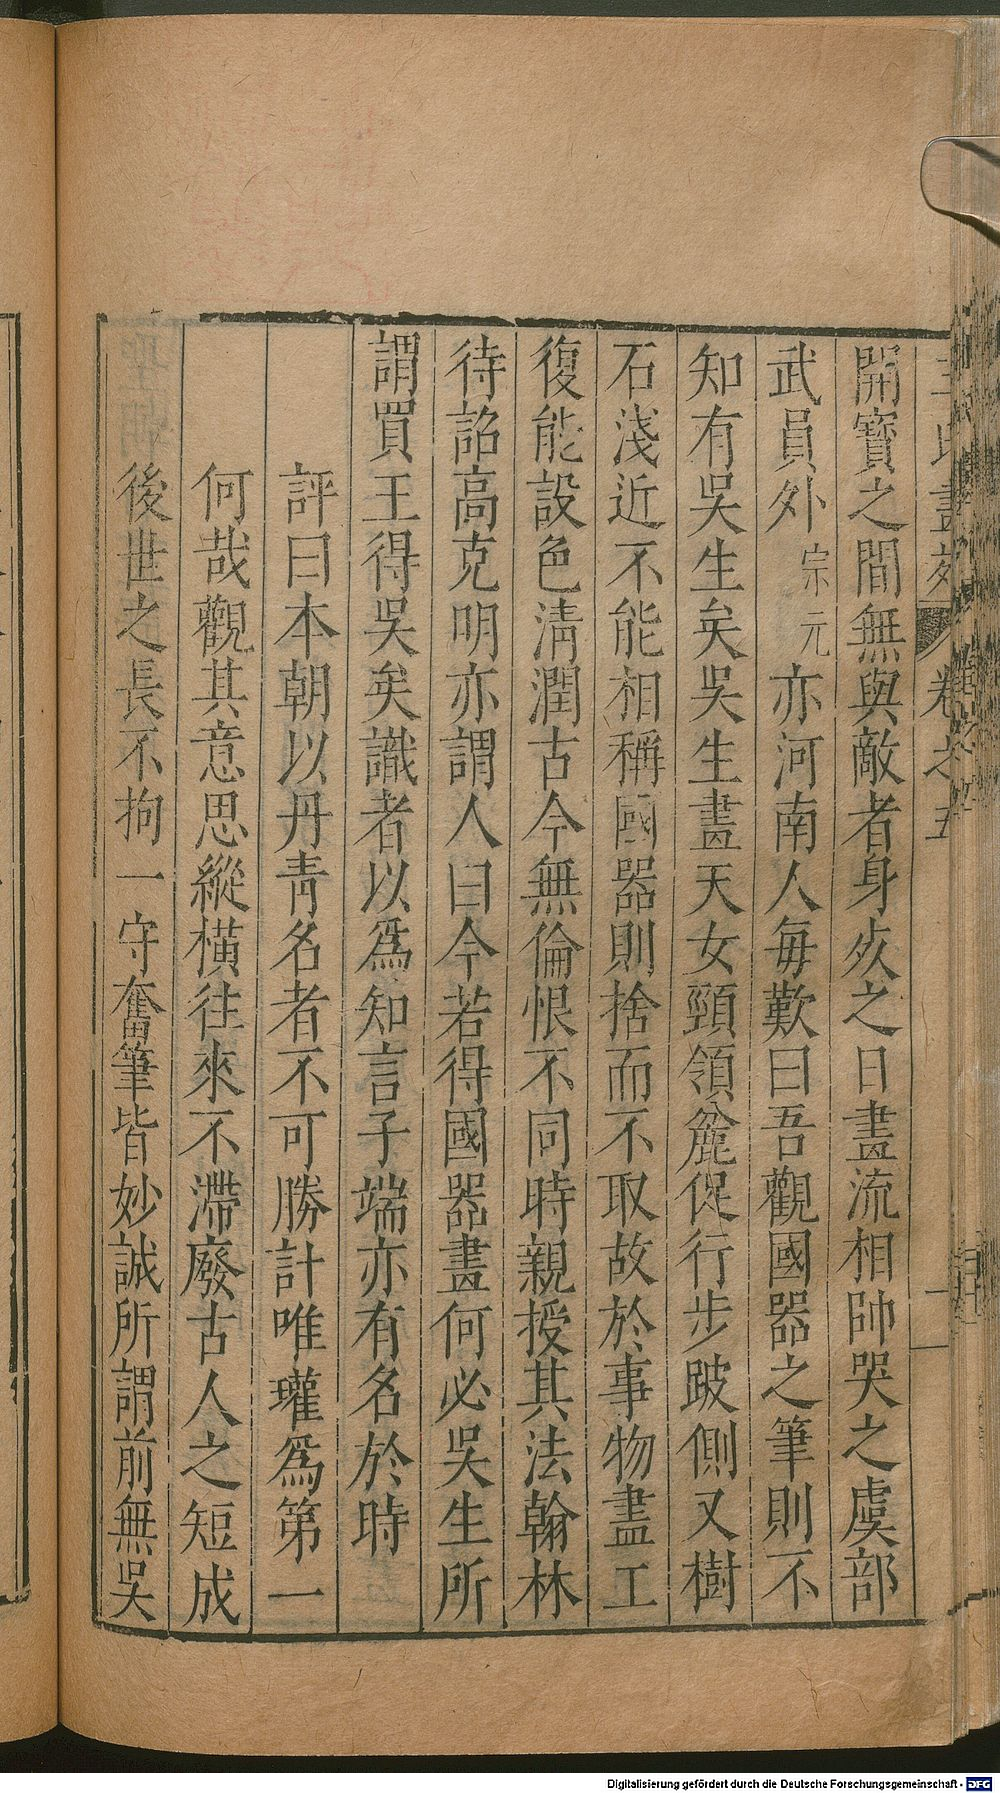 王氏畫苑 卷之五 一
開寶之間無與敵者身歿之日畫流相帥哭之虞部
武員外宗元亦河南人每歎曰吾觀國器之筆則不
知有吳生矣吳生畫天女頸領麄促行步跛側又樹
石淺近不能相稱國器則捨而不取故於事物盡工
復能設色淸潤古今無倫恨不同時親授其法翰林
待詔高克明亦謂人曰今若得國器畫何必吳生所
謂買王得吳矣識者以爲知言子端亦有名於時
評曰本朝以丹靑名者不可勝計唯瓘爲第一
何哉觀其意思縱橫往來不滯廢古人之短成
後世之長不拘一守奮筆皆妙誠所謂前無吳
Digitalisierung gefördert durch die Deutsche Forschungsgemeinschaft - DFG